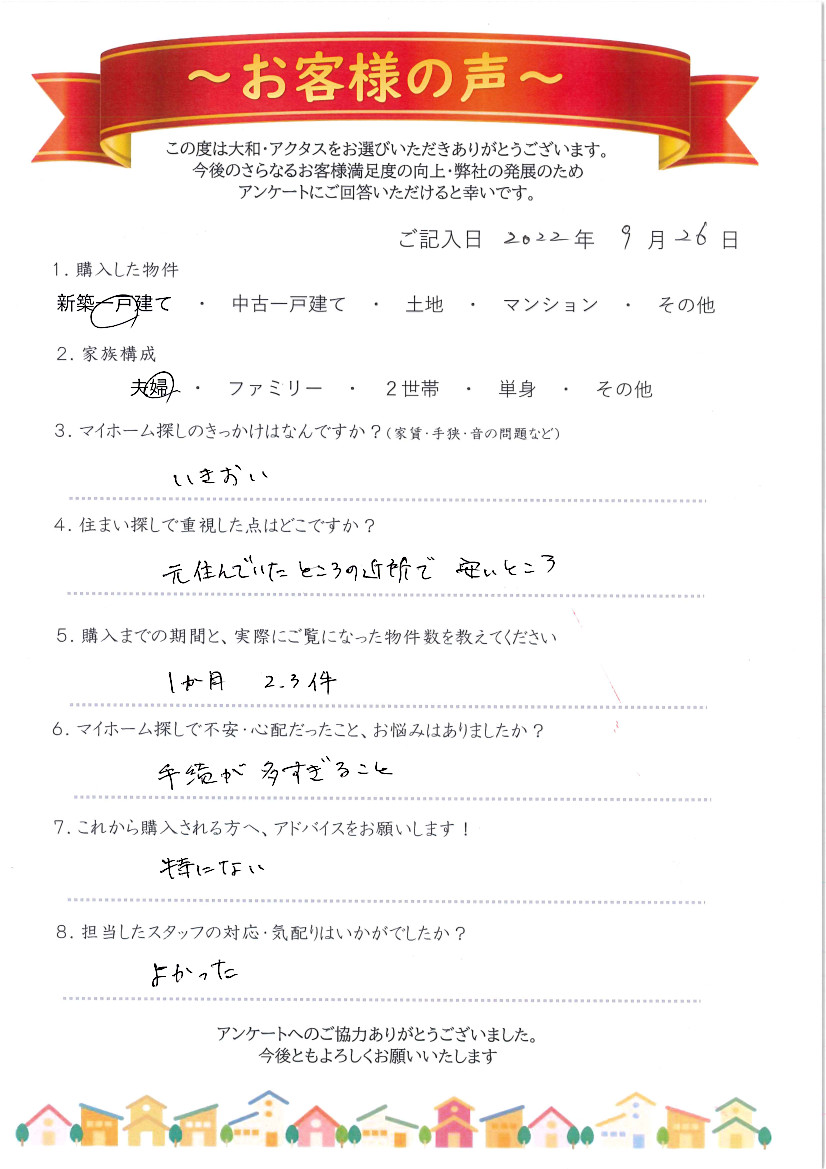 ～お客様の声～
この度は大和・アクタスをお選びいただきありがとうございます。
今後のさらなるお客様満足度の向上・弊社の発展のため
アンケートにご回答いただけると幸いです。
ご記入日 2022年 9月26日
1. 購入した物件
新築一戸建て ・ 中古一戸建て ・ 土地 ・ マンション ・ その他
2. 家族構成
夫婦 ・ ファミリー ・ 2世帯 ・ 単身 ・ その他
3. マイホーム探しのきっかけはなんですか？(家賃・手狭・音の問題など)
いきおい
4. 住まい探しで重視した点はどこですか？
元住んでいたところの近所で 安いところ
5. 購入までの期間と、実際にご覧になった物件数を教えてください
1か月 2.3件
6. マイホーム探しで不安・心配だったこと、お悩みはありましたか？
手続が多すぎること
7. これから購入される方へ、アドバイスをお願いします！
特にない
8. 担当したスタッフの対応・気配りはいかがでしたか？
よかった
アンケートへのご協力ありがとうございました。
今後ともよろしくお願いいたします